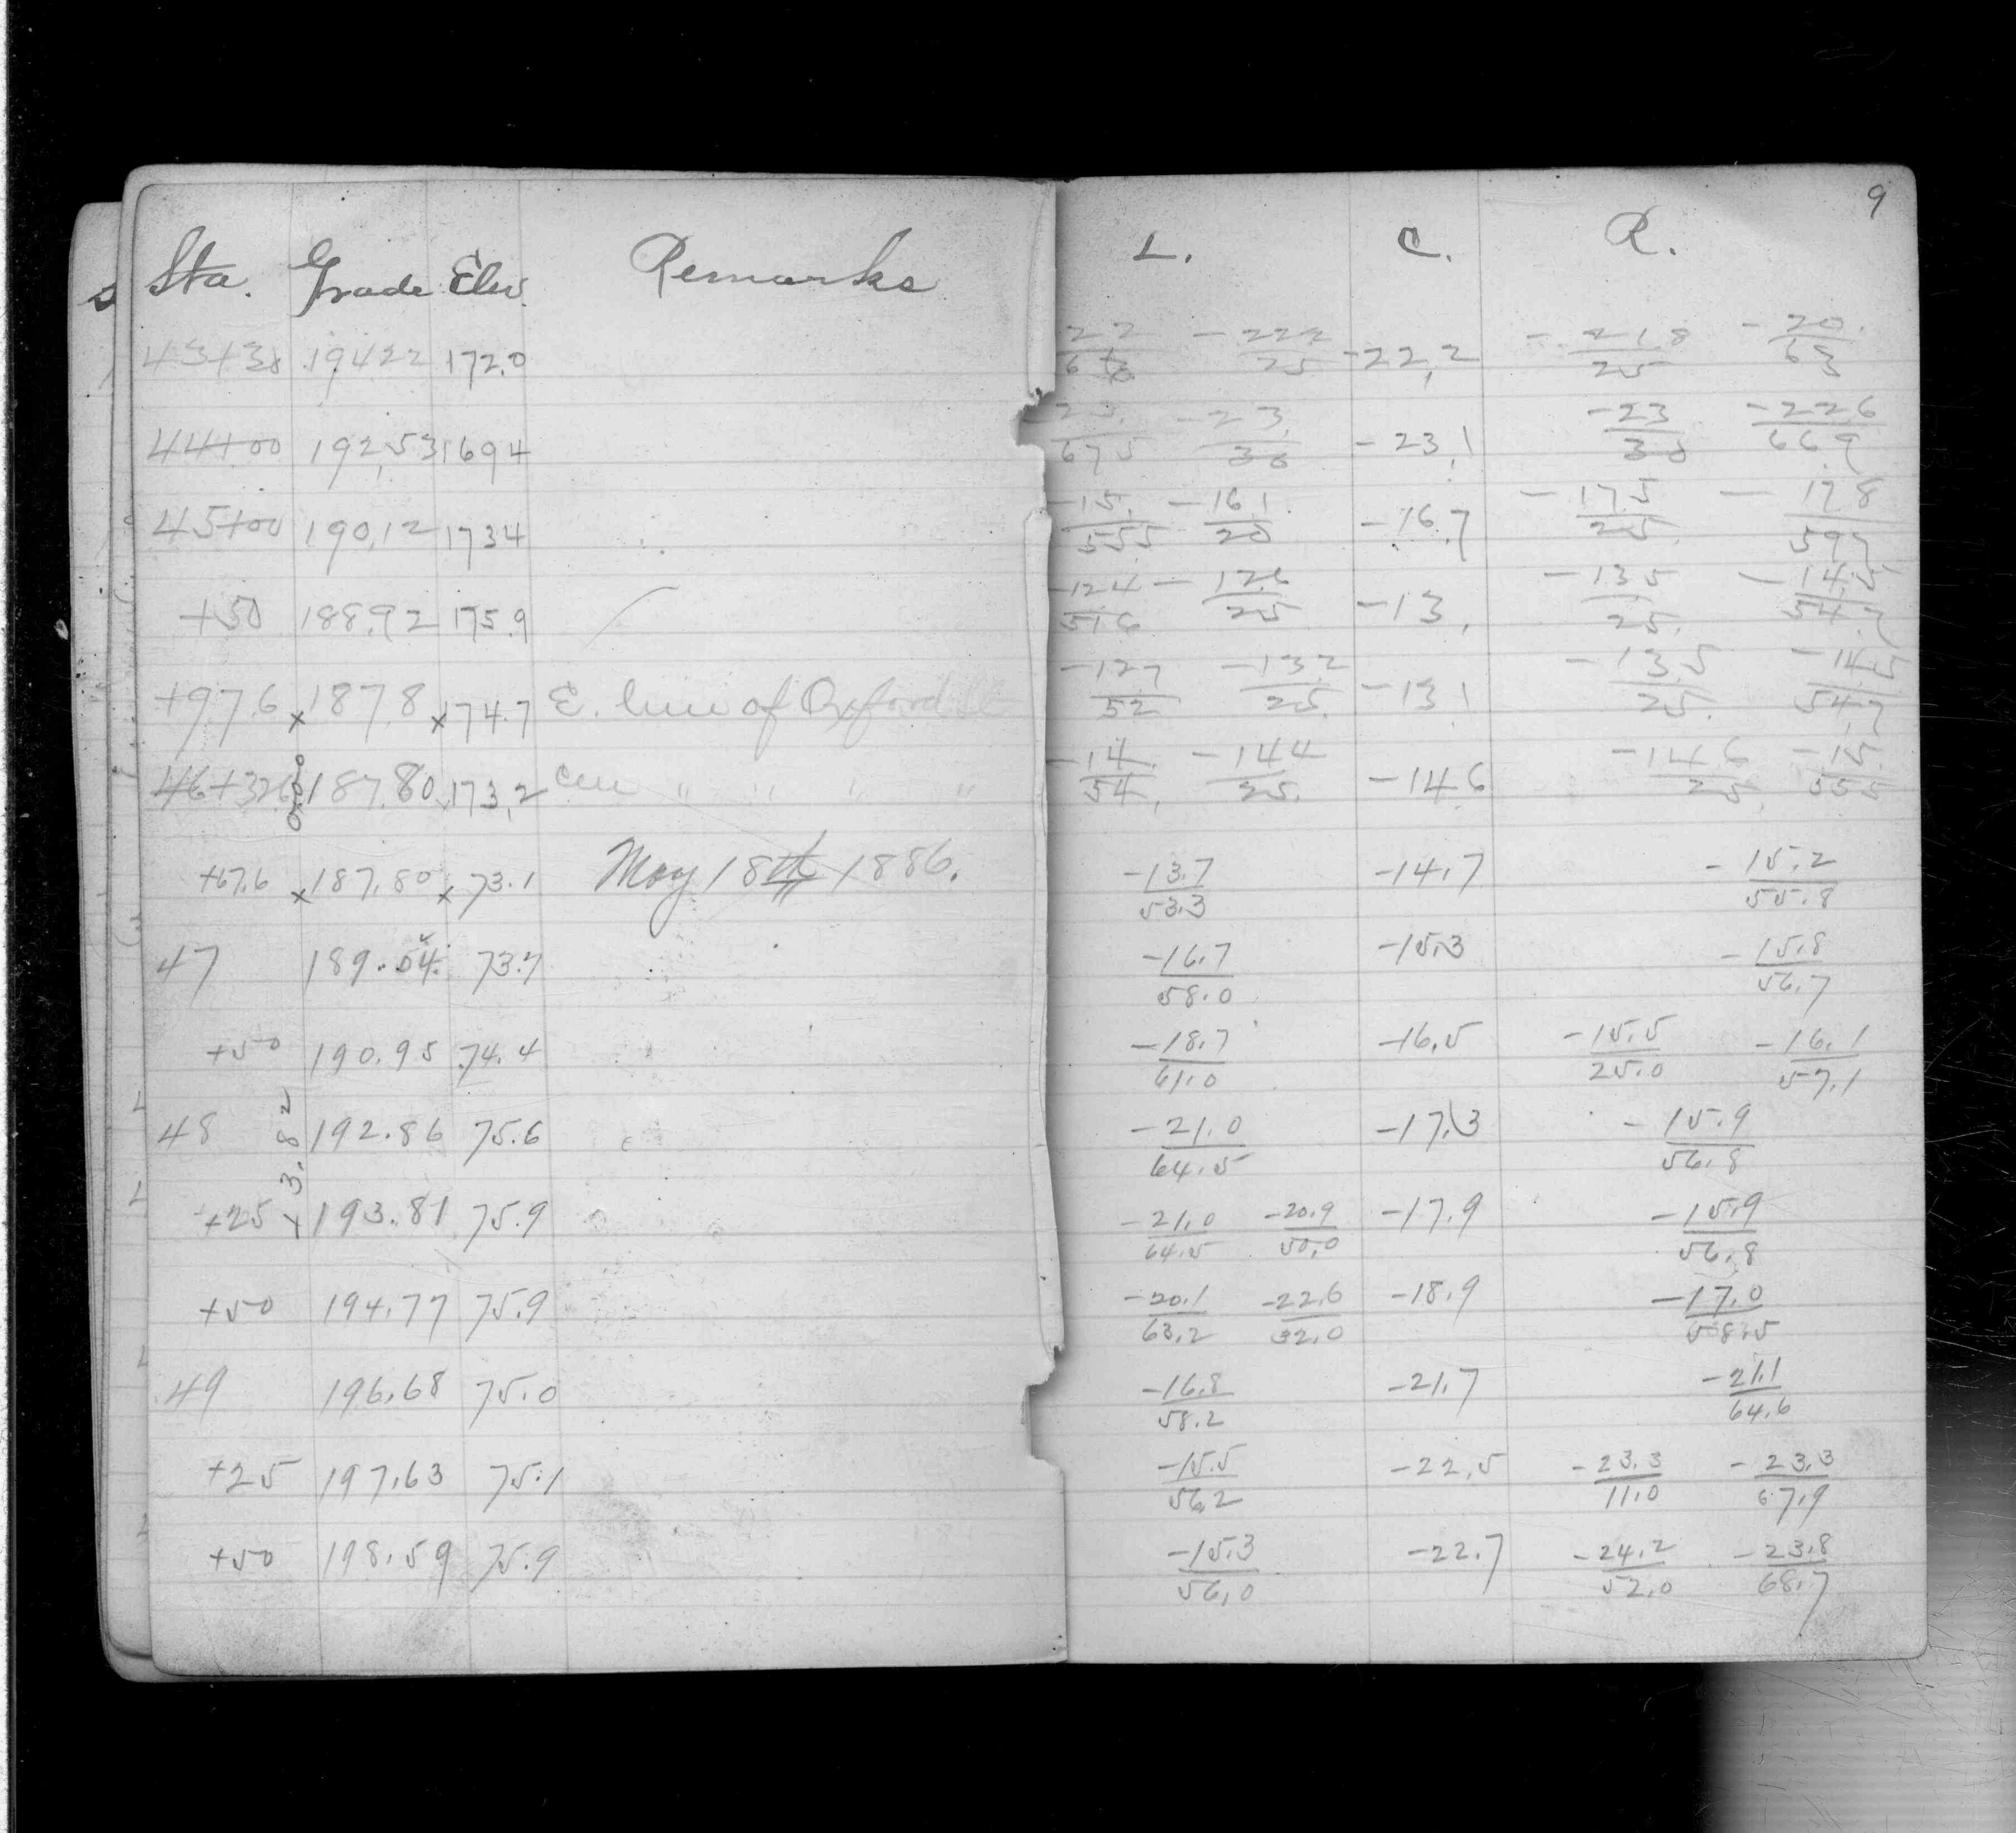 9
Sta. Grade Elev. Remarks L. C. R.
43+38 194.22 172.0 -22.2/25 -22.2 -21.8/25 -20./63
44+00 192.53 169.4 -23./67.5 -23./38 -23.1 -23/38 -22.6/66.9
45+00 190.12 173.4 -15./55.5 -16.1/20 -16.7 -17.5/25. -17.8/59.7
+50 188.92 175.9 -12.4/51.6 -12.6/25 -13. -13.5/25. -14.5/54.7
+97.6 × 187.8 × 174.7 E. line of Oxford -12.7/52 -13.2/25. -13.1 -13.5/25. -14.5/54.7
46+32.6 187.80 173.2 Cen " " " " -14./54. -14.4/25. -14.6 -14.6/25. -15./55.5
0.00
+67.6 × 187.80 × 73.1 May 18th 1886. -13.7/53.3 -14.7 -15.2/55.8
47 189.04 73.7 -16.7/58.0 -15.3 -15.8/56.7
+50 190.95 74.4 -18.7/61.0 -16.5 -15.5/25.0 -16.1/57.1
48 192.86 75.6 -21.0/64.5 -17.3 -15.9/56.8
+3.82
+25 193.81 75.9 -21.0/64.5 -20.9/50.0 -17.9 -15.9/56.8
+50 194.77 75.9 -20.1/63.2 -22.6/32.0 -18.9 -17.0/58.5
49 196.68 75.0 -16.8/58.2 -21.7 -21.1/64.6
+25 197.63 75.1 -15.5/56.2 -22.5 -23.3/11.0 -23.3/67.9
+50 198.59 75.9 -15.3/56.0 -22.7 -24.2/52.0 -23.8/68.7